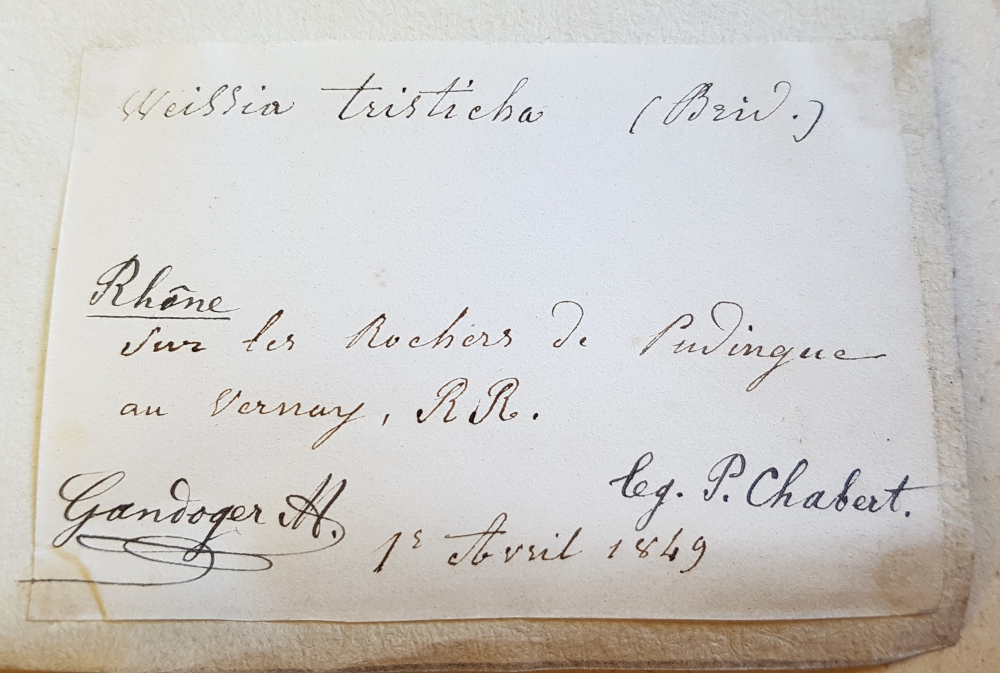 Weissia tristicha (Brid.)
Rhône
Sur les Rochers de Pudingue
au Vernay, RR.
leg. P. Chabert.
Gandoger M.
1er Avril 1849